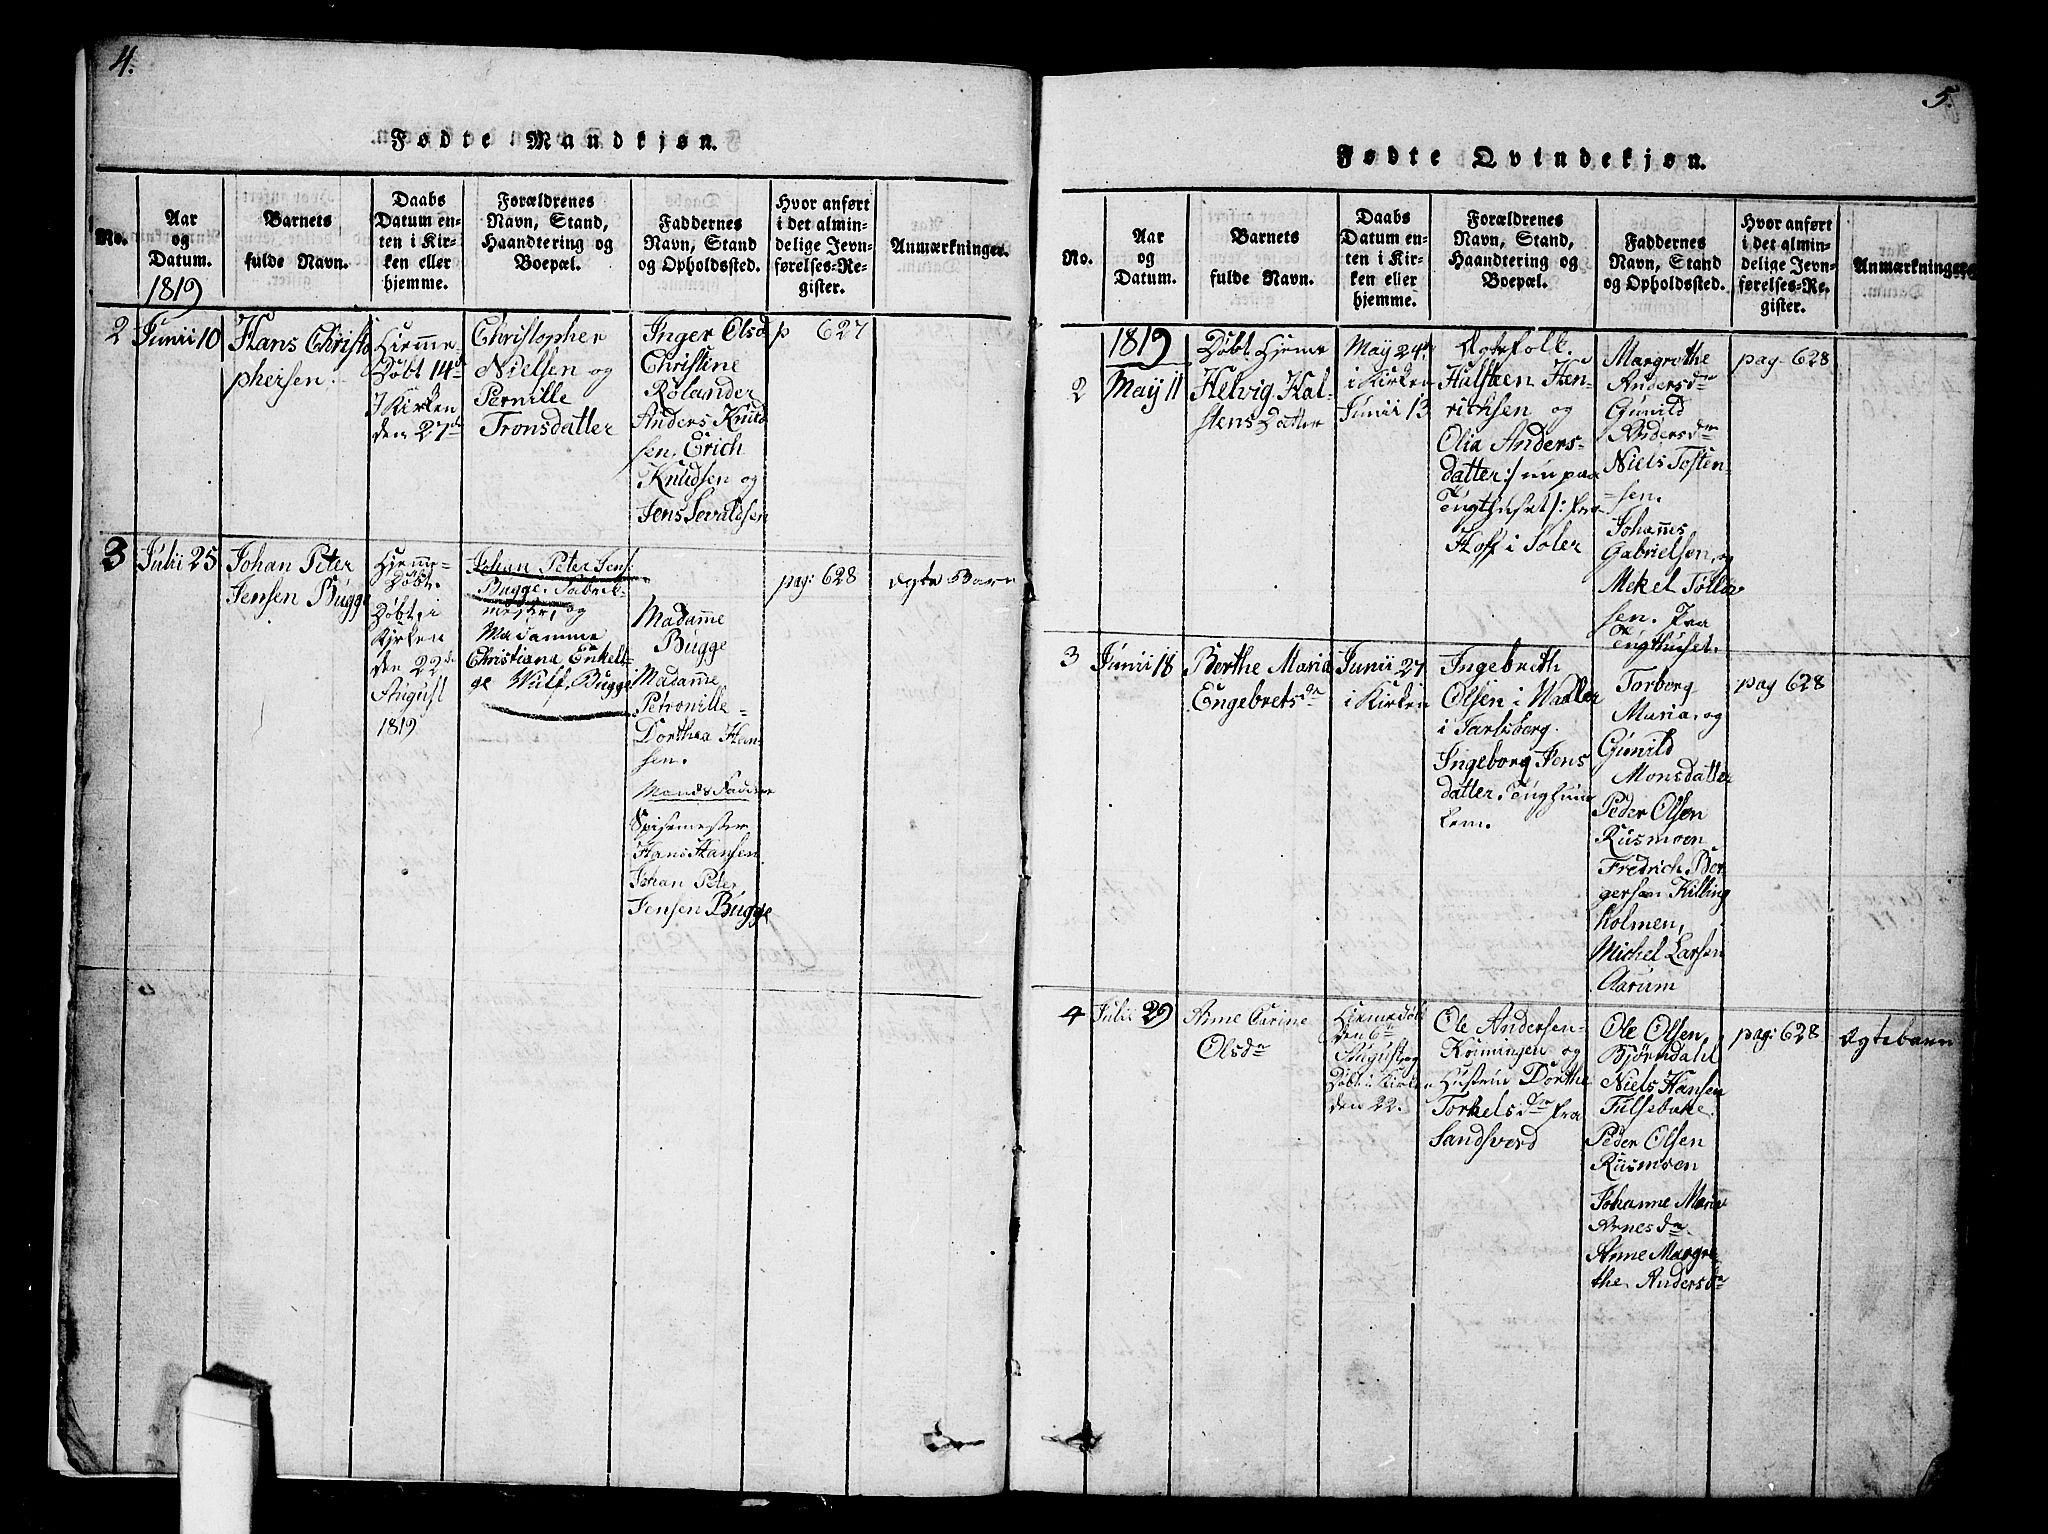 4.
Fødte Mandkjøn.
No.
Aar
og
Datum.
1819
Barnets
fulde Navn.
Daabs
Datum en-
ten i Kir-
ken eller
hjemme.
Forældrenes
Navn, Stand,
Haandtering og
Boepæl.
Faddernes
Navn, Stand
og Opholdssted.
Hvor anført
i det almin-
delige Jevn-
førelses-Re-
gister.
Anmærkninger.
2
Junii 10
Hans Christo
phersen.
Hjemme
Døbt 14d
I Kirken
den 27de
Christopher
Nielsen og
Pernille
Tronsdatter
Inger Olsd
Christine
Rolander
Anders Knud
sen, Erich
Knudsen og
Jens Sevaldsen
p 627
3
Julii 25
Johan Peter
Jensen Bugge
Hjemme-
Døbt.
Døbt, i
Kjrken
den 22de
August
1819
Johan Peter Jens:
Bugge, Fabrik-
mester, og
Madamme
Christiana Enkelt-
ge Wulf, Bugge
Madamme
Bugge
Madamme
Petronille
Dorthea Han-
sen.
Mands Faddere
Spisemester
Hans Hansen
Johan Peter
Jensen Bugge
pag: 628
Ægte Barn
5.
Fødte Qvindekjøn.
No.
Aar
og
Datum.
Barnets
fulde Navn.
Daabs
Datum en-
ten i Kir-
ken eller
hjemme.
Forældrenes
Navn, Stand,
Haandtering og
Boepæl.
Faddernes
Navn, Stand
og Opholdssted.
Hvor anført
i det almin-
delige Jevn-
førelses-Re-
gister.
Anmærkninger
2
1819
May 11
Døbt Hjeme
Helvig Hal-
stens Datter
May 24de
i Kirken
Junii 13
Ægtefolk.
Halsteen Hen-
richsen og
Olia Anders-
datter :/ nu paa
Tugthuset /: fra
Hoff i Soler
Margrethe
Andersdr
Gunild
Andersdr
Niels Tosten-
sen.
Johannes
Gabrielsen, og
Mekel Tollev
sen. Fra
Tugthuset.
pag. 628
3
Junii 18
Berthe Maria
Engebretsdr
Junii 27
i Kirken
Ingebrith
Olsen i Waaler
i Jarlsberg.
Ingeborg Jens
datter. Tugthuus
lem.
Torborg
Maria, og
Gunild
Monsdatter
Peder Olsen
Rusmoen
Fredrich Bør
gersen Killing
holmen,
Michel Larsen
Aarum
pag 628
4
Julii 29
Anne Carine
Olsdr
Hjemedøbt
den 6te
August, og
Døbt i Kirken
den 22.
Ole Andersen
og
Hustrue Dorthe
Torkelsdr fra
Sandsverd
Ole Olsen
Bjørndahl
Niels Hansen
Peder Olsen
Rusmoen
Johanne Marie
Arnesdr
Anne Margre
the Andersdr
pag: 628
Ægtebarn